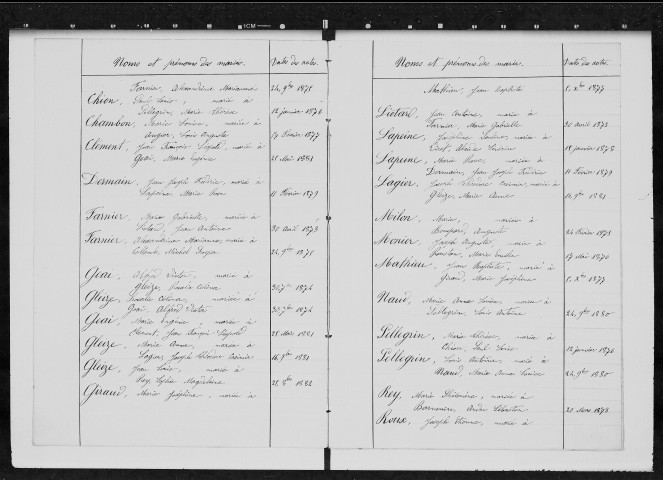 Noms et prénoms des mariés. Dates des actes.
Farnier, Alexandrine Marianne 24, 9bre 1875
Chion, Paul Louis, mariée à
Pellegrin, Marie Thérèse 12 janvier 1876
Chambon, Marie Louise, mariée à
Augier, Louis Auguste 17 février 1877
Clément, Jean François Léopold, mariée à
Geai, Marie Eugénie 28 Mai 1881
Dormain, Jean Joseph Frédéric, mariée à
Lapeine Marie Rose 11 février 1879
Farnier, Marie Gabrielle, mariée à
Liotard, Jean Antoine 30 avril 1873
Farnier, Alexandrine Marianne, mariée à
Michel 24, 9bre 1875
Geai, Alfred Victor, mariée à
Gleize, Rosalie Célina 30, 7bre 1874
Gleize, Rosalie Célina, mariée à
Geai, Alfred Victor 30, 7bre 1874
Geai, Marie Eugénie, mariée à
Clément, Jean François Léopold 28 Mai 1881
Gleize, Marie Anne, mariée à
Lagier, Joseph 16, 9bre 1881
Gleize, Jean Louis, mariée à
Rey, Magdeleine 1882
Giraud, Marie Joséphine, mariée à
Noms et prénoms des mariés. Dates des actes.
Mathieu, Jean Baptiste 8, Xbre 1877
Liotard, Jean Antoine, mariée à
Farnier, Marie Gabrielle 30 avril 1873
Lapeine, Joséphine, mariée à
18 janvier 1878
Lapeine, Marie Rose, mariée à
Dormain, Jean Joseph Frédéric 11 février 1879
Lagier, Joseph, mariée à
Gleize, Marie Anne 16, 9bre 1881
Milon, Marie, mariée à
Auguste 24 février 1875
Monier, Joseph Auguste, mariée à
Marie 17 Mai 1876
Mathieu, Jean Baptiste, mariée à
Giraud, Marie Joséphine 8, Xbre 1877
Naud, Marie Anne Louise, mariée à
Pellegrin, Louis Antoine 24, 9bre 1880
Pellegrin, Marie Thérèse, mariée à
Chion, Paul Louis 12 janvier 1876
Pellegrin, Louis Antoine, mariée à
Naud, Marie Anne Louise 24, 9bre 1880
Rey, Marie, mariée à
20 Mars 1878
Roux, Joseph Etienne, mariée à